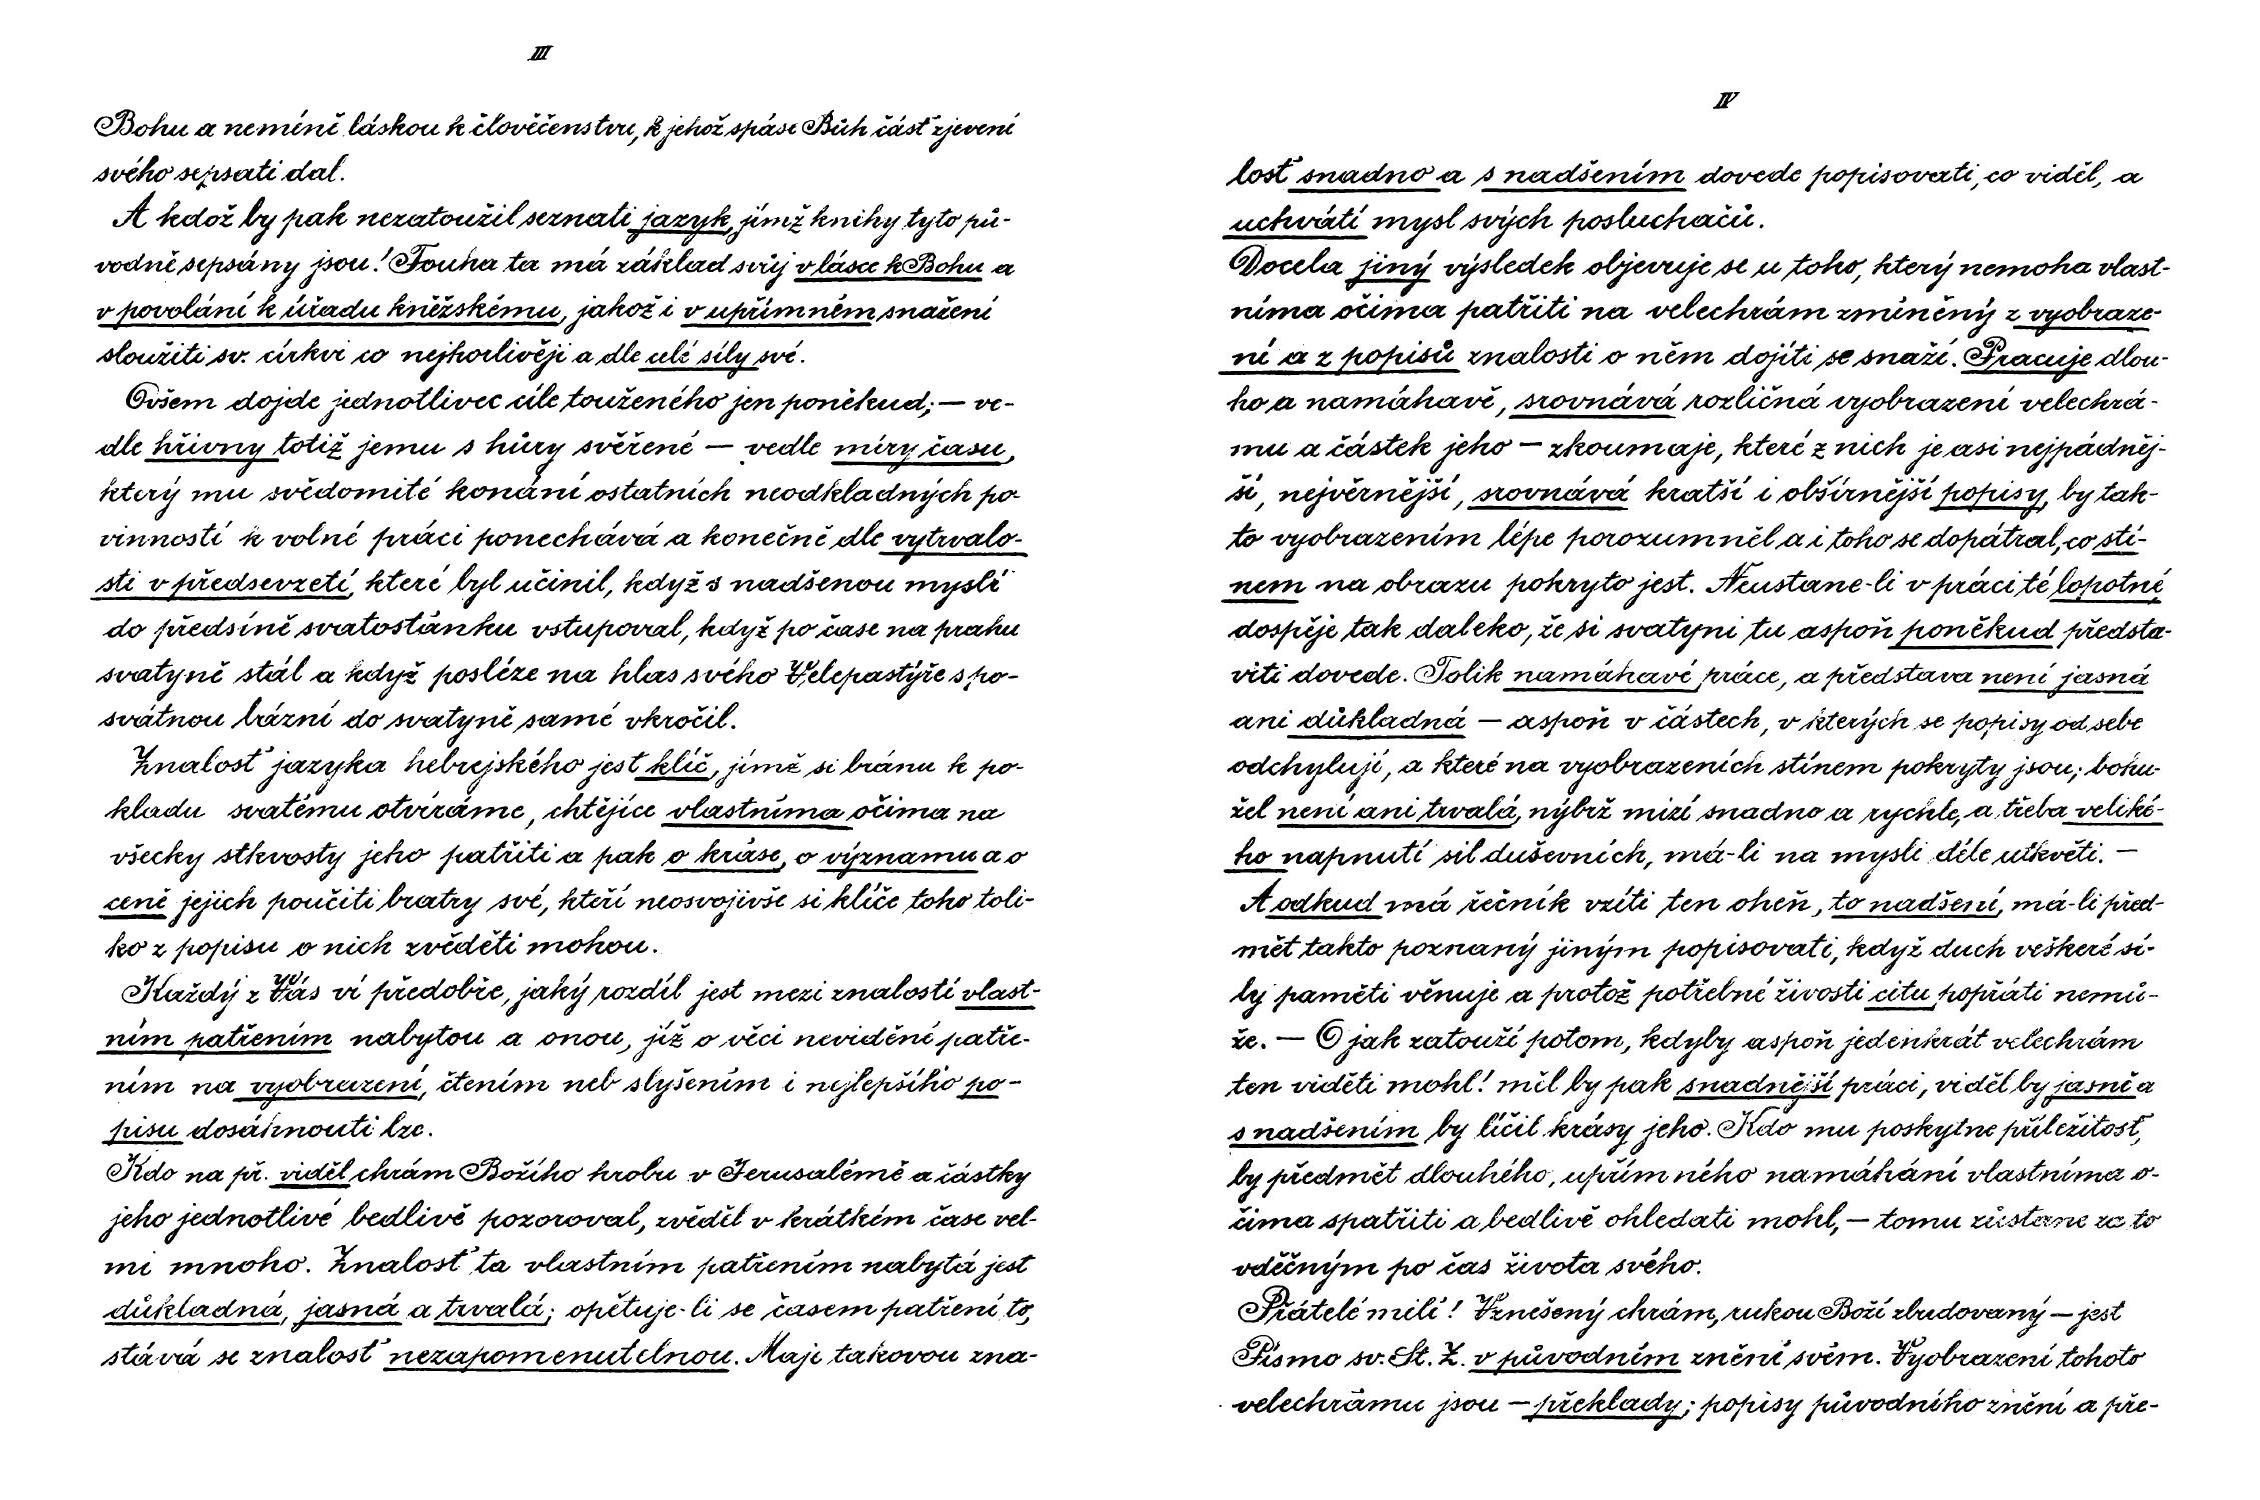 III
Bohu a neméně láskou k člověčenstvu, k jehož spáse Bůh část zjevení
svého sepsati dal.
A kdož by pak nezatoužil seznati jazyk, jímž knihy tyto pů-
vodně sepsány jsou! Touha ta má základ svůj v lásce k Bohu a
v povolání k úřadu kněžskému, jakož i v upřímném snažení
sloužiti sv. církvi co nejhorlivěji a dle celé síly své.
Ovšem dojde jednotlivec cíle touženého jen poněkud; — ve-
dle hřivny totiž jemu s hůry svěřené — vedle míry času,
který mu svědomité konání ostatních neodkladných po-
vinností k volné práci ponechává a konečně dle vytrvalo-
sti v předsevzetí, které byl učinil, když s nadšenou myslí
do předsíně svatostánku vstupoval, když po čase na prahu
svatyně stál a když posléze na hlas svého Velepastýře s po-
svátnou bázní do svatyně samé vkročil.
Znalosť jazyka hebrejského jest klíč, jímž si bránu k po-
kladu svatému otvíráme, chtějíce vlastníma očima na
všecky skvosty jeho patřiti a pak o kráse, o významu a o
ceně jejich poučiti bratry své, kteří neosvojivše si klíče toho toli-
ko z popisu o nich zvěděti mohou.
Každý z Vás ví předobře, jaký rozdíl jest mezi znalostí vlast-
ním patřením nabytou a onou, jíž o věci nevidění patře-
ním na vyobrazení, čtením neb slyšením i nejlepšího po-
pisu dosáhnouti lze.
Kdo na př. viděl chrám Božího hrobu v Jerusalémě a částky
jeho jednotlivé bedlivě pozoroval, zvěděl v krátkém čase vel-
mi mnoho. Znalosť ta vlastním patřením nabytá jest
důkladná, jasná a trvalá; opětuje-li se časem patření to,
stává se znalosť nezapomenutelnou. Maje takovou zna-
IV
losť snadno a s nadšením dovede popisovati, co viděl, a
uchvátí mysl svých posluchačů.
Docela jiný výsledek objevuje se u toho, který nemoha vlast-
níma očima patřiti na velechrám zmíněný z vyobraze-
ní a z popisů znalosti o něm dojíti se snaží. Pracuje dlou-
ho a namáhavě, srovnává rozličná vyobrazení velechrá-
mu a částek jeho — zkoumaje, které z nich je asi nejpádněj-
ší, nejvěrnější, srovnává kratší i obšírnější popisy, by tak-
to vyobrazením lépe porozumněl a i toho se dopátral, co stí-
nem na obrazu pokryto jest. Neustane-li v práci té lopotné,
dospěje tak daleko, že si svatyni tu aspoň poněkud předsta-
viti dovede. Tolik namáhavé práce, a představa není jasná
ani důkladná — aspoň v částech, v kterých se popisy od sebe
odchylují, a které na vyobrazeních stínem pokryty jsou; bohu-
žel není ani trvalá, nýbrž mizí snadno a rychle, a třeba veliké-
ho napnutí sil duševních, má-li na mysli déle utkvěti. —
A odkud má řečník vzíti ten oheň, to nadšení, má-li před-
mět takto poznaný jiným popisovati, když duch veškeré sí-
ly paměti věnuje a protož potřebné živosti citu popřáti nemů-
že. — O jak zatouží potom, kdyby aspoň jedenkrát velechrám
ten viděti mohl! měl by pak snadnější práci, viděl by jasně a
s nadšením by líčil krásy jeho. Kdo mu poskytne příležitosť,
by předmět dlouhého, upřímného namáhání vlastníma o-
čima spatřiti a bedlivě ohledati mohl, — tomu zůstane za to
vděčným po čas života svého.
Přátelé milí! Vznešený chrám, rukou Boží zbudovaný — jest
Písmo sv. St. Z. v původním znění svém. Vyobrazení tohoto
velechrámu jsou — překlady; popisy původního znění a pře-